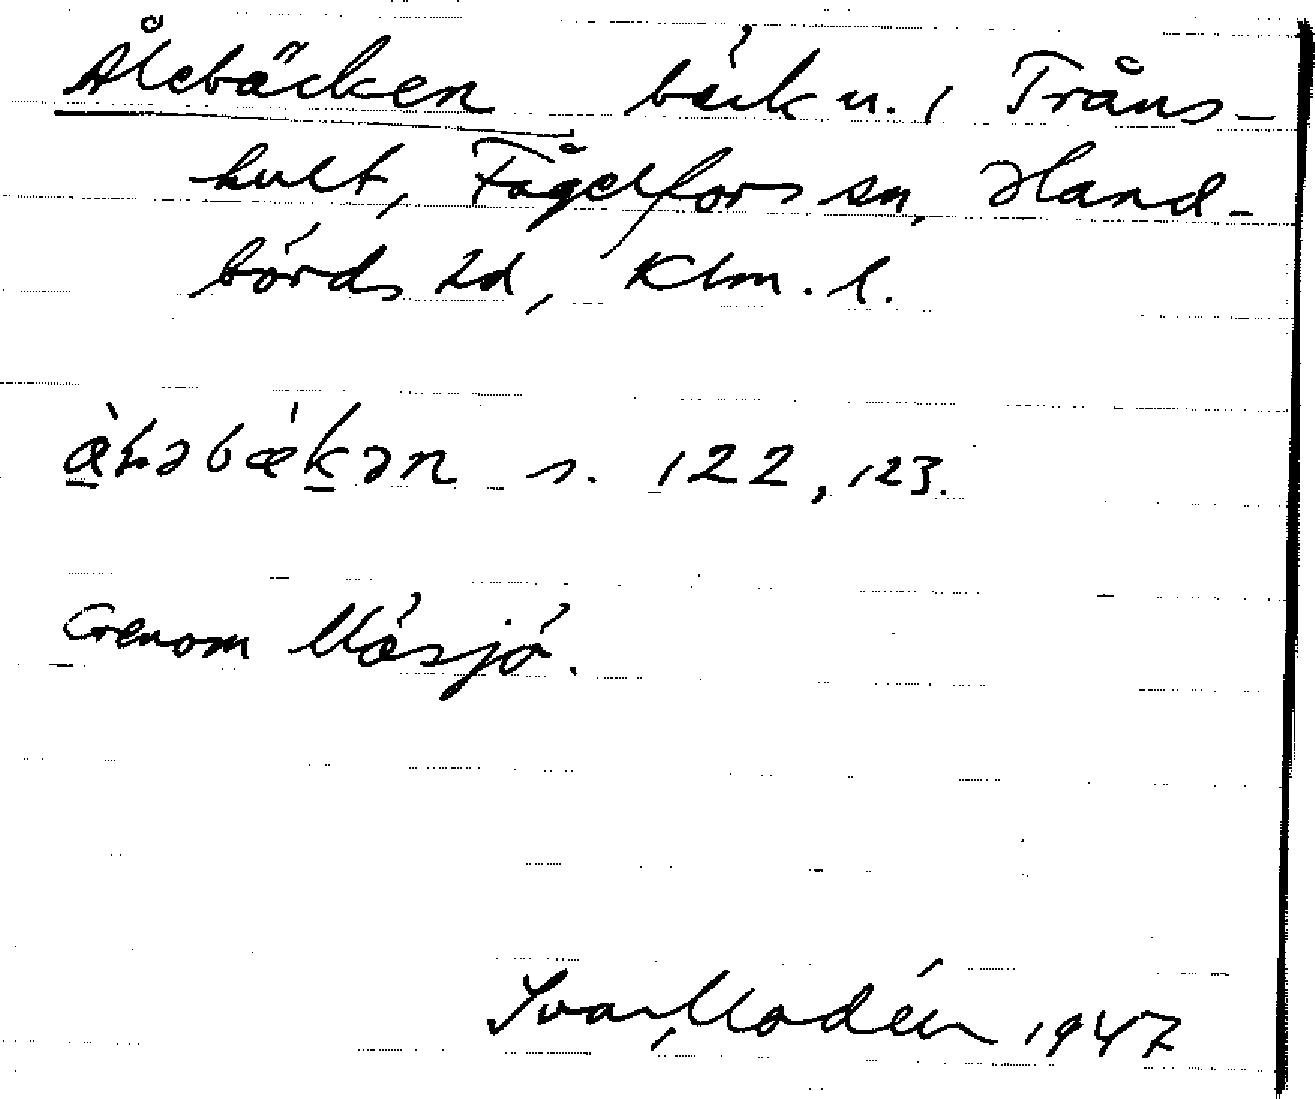 Ålebäcken bäck n. 1 Tråns-
hult, Fågelfors sn, Hand-
börds hd, Klm. l.
s. 122, 123.
Genom Mösjö.
Ivar Modéer 1947